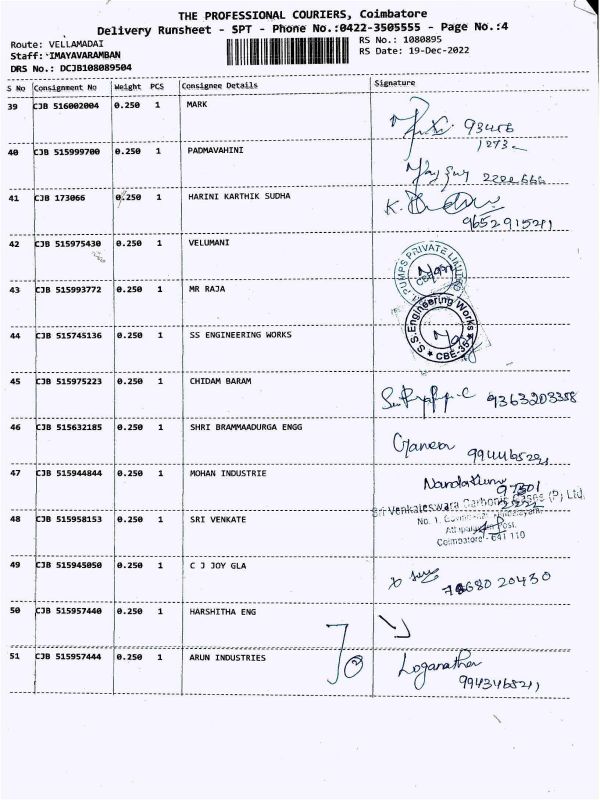 THE PROFESSIONAL COURIERS, Coimbatore
Delivery Runsheet - SPT - Phone No.:0422-3505555 - Page No.:4
Route: VELLAMADAI
RS No.: 1080895
Staff: IMAYAVARAMBAN
RS Date: 19-Dec-2022
DRS No.: DCJB108089504
S No Consignment No Weight PCS Consignee Details Signature
39 CJB 516002004 0.250 1 MARK
93456
1273
40 CJB 515999700 0.250 1 PADMAVAHINI
41 CJB 173066 0.250 1 HARINI KARTHIK SUDHA
K.
9652915211
42 CJB 515975430 0.250 1 VELUMANI
PUMPS PRIVATE LIMITED
CBE
43 CJB 515993772 0.250 1 MR RAJA
44 CJB 515745136 0.250 1 SS ENGINEERING WORKS
S.S.Engineering Works
CBE-35
45 CJB 515975223 0.250 1 CHIDAM BARAM
9363203358
46 CJB 515632185 0.250 1 SHRI BRAMMAADURGA ENGG
Ganesan
47 CJB 515944844 0.250 1 MOHAN INDUSTRIE
97301
Sri Venkateswara Carbonic Gases (P) Ltd,
48 CJB 515958153 0.250 1 SRI VENKATE
No. 1,
Post,
Coimbatore - 641 110
49 CJB 515945050 0.250 1 C J JOY GLA
68020430
50 CJB 515957440 0.250 1 HARSHITHA ENG
51 CJB 515957444 0.250 1 ARUN INDUSTRIES
Loganathan